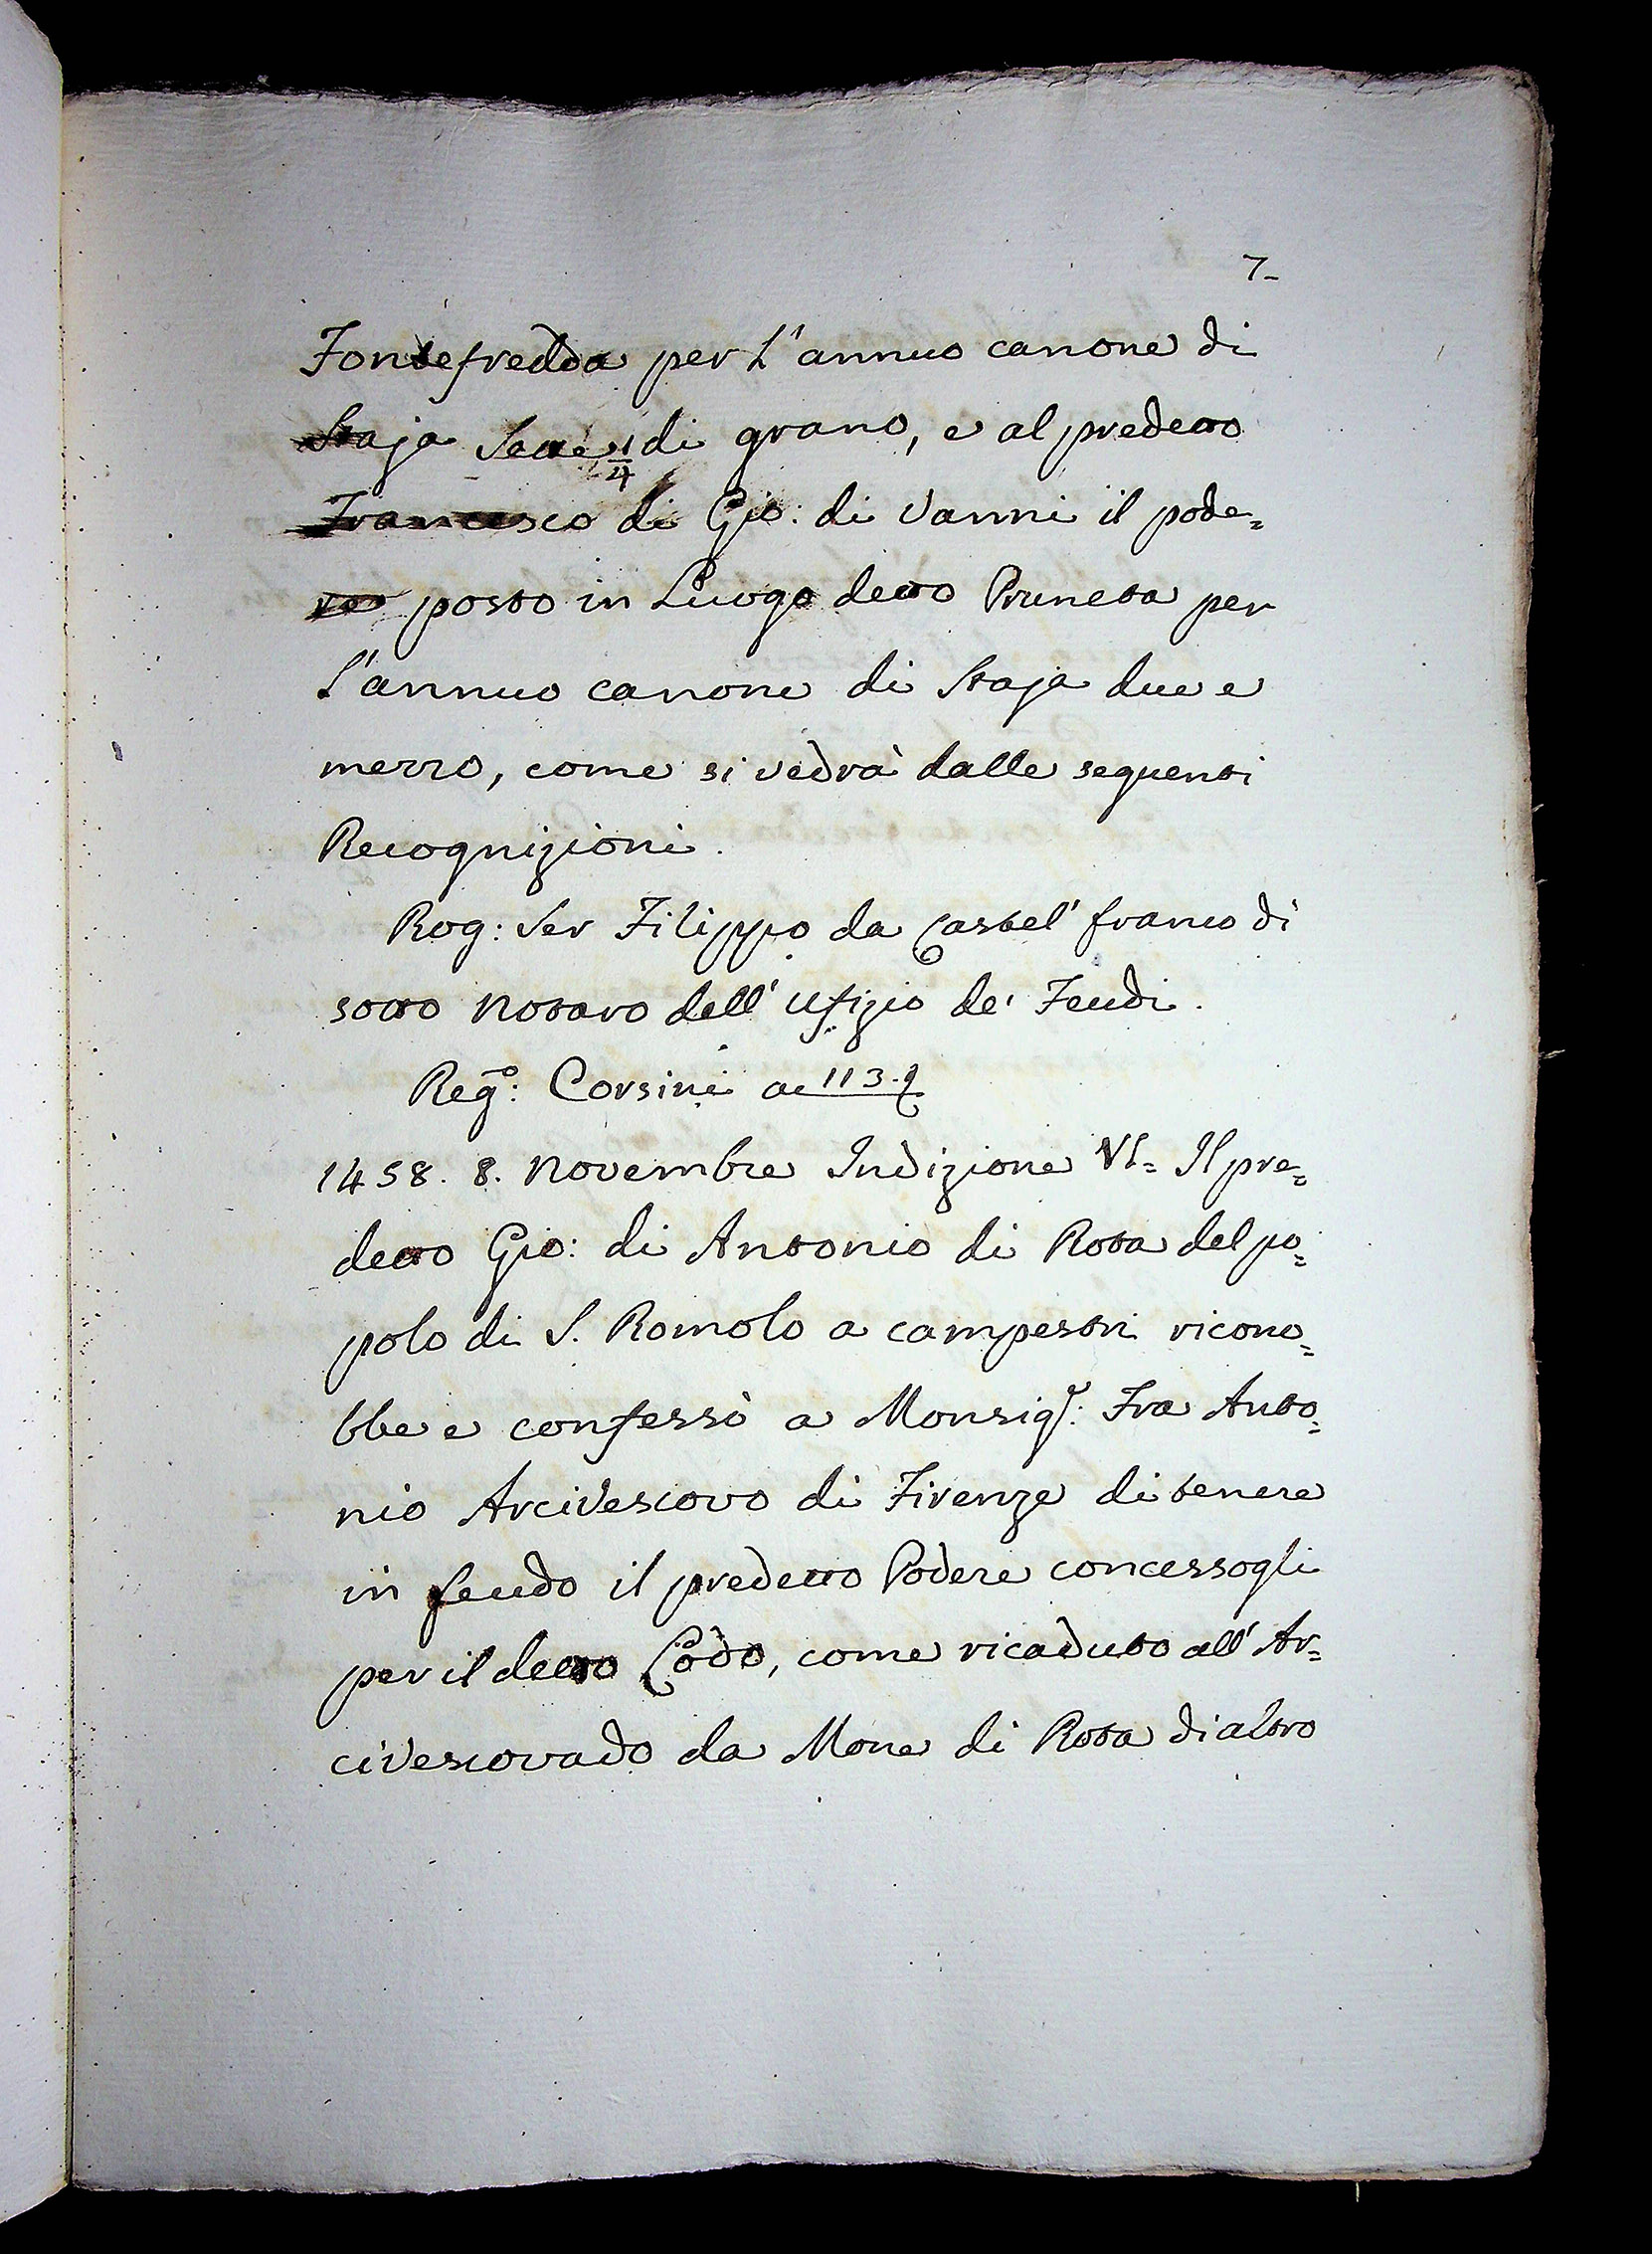 7-
Fontefredda per L'annuo canone di
Staja Sette 1/4 di grano, e al predetto
Francesco di Gio: di Vanni il pode=
re posto in Luogo detto Pruneta per
l'annuo canone di Staja due e
mezzo, come si vedrà dalle seguenti
Recognizioni.
Rog: Ser Filippo da Castel' franco di
sotto Notaro dell' Ufizio de' Feudi.
Reg.o: Corsini a 113.
1458. 8. Novembre Indizione VI= Il pre=
detto Gio: di Antonio di Rota del po=
polo di S. Romolo a campestri ricono=
bbe e confessò a Monsig.r: Fra Anto=
nio Arcivescovo di Firenze di tenere
in feudo il predetto Podere concessogli
per il detto Lodo, come ricaduto all' Ar=
civescovado da Mone di Rota di altro